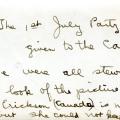 The 1st July Party
given to the Ca
e were all stew
look of the picline
Erickson (Canada) is n
our she could not hea